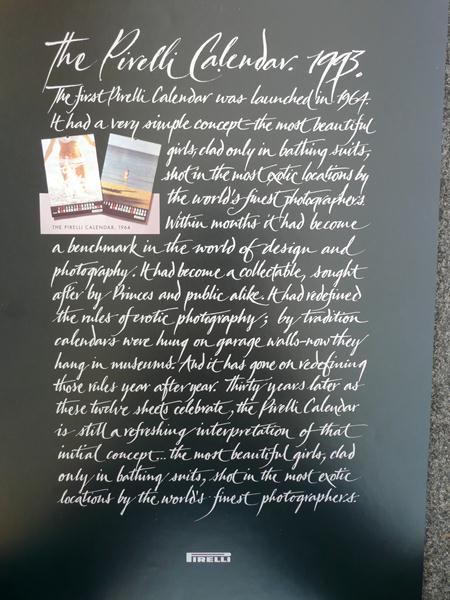 The Pirelli Calendar. 1993.
The first Pirelli Calendar was launched in 1964.
It had a very simple concept-the most beautiful
girls, clad only in bathing suits,
shot in the most exotic locations by
the world's finest photographers.
Within months it had become
THE PIRELLI CALENDAR, 1964
a benchmark in the world of design and
photography. It had become a collectable, sought
after by Princes and public alike. It had redefined
the rules of erotic photography; by tradition
calendars were hung on garage walls-now they
hang in museums. And it has gone on redefining
those rules year after year. Thirty years later as
these twelve sheets celebrate, the Pirelli Calendar
is still a refreshing interpretation of that
initial concept... the most beautiful girls, clad
only in bathing suits, shot in the most exotic
locations by the world's finest photographers.
PIRELLI